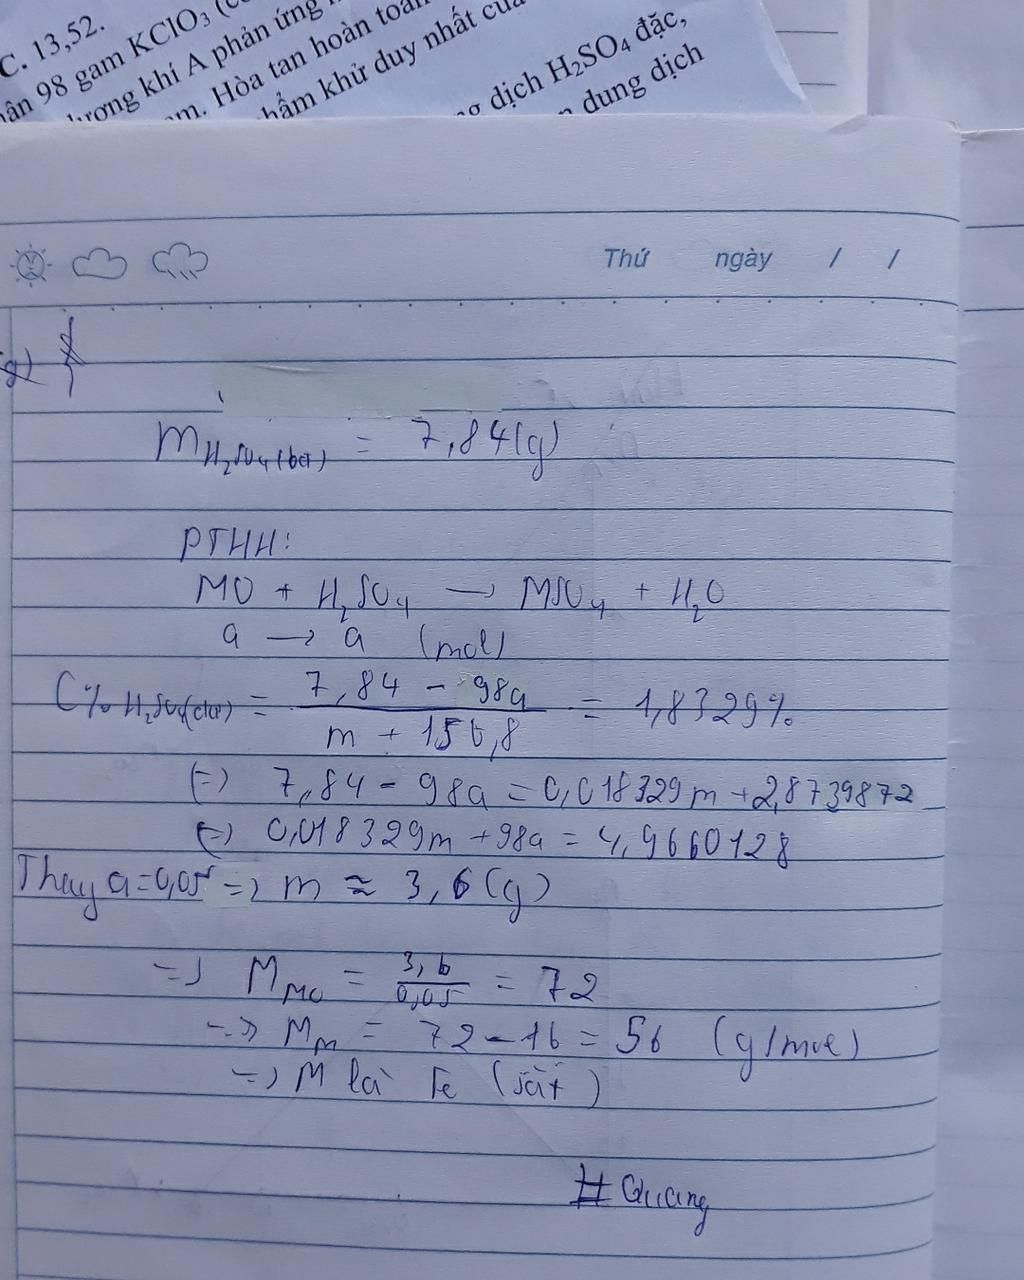 C. 13,52.
ân 98 gam KClO₃ (c
lượng khí A phản ứng
m. Hòa tan hoàn toàn
hẩm khử duy nhất của
dịch H₂SO₄ đặc,
dung dịch
Thứ ngày / /
g)
m H₂SO₄(bđ) = 7,84(g)
PTHH:
MO + H₂SO₄ → MSO₄ + H₂O
a → a (mol)
C% H₂SO₄(dư) = (7,84 - 98a)/(m + 156,8) = 1,8329%
(=) 7,84 - 98a = 0,018329m + 2,8739872
(=) 0,018329m + 98a = 4,9660128
Thay a = 0,05 => m ≈ 3,6 (g)
=> M MO = 3,6/0,05 = 72
=> M M = 72 - 16 = 56 (g/mol)
=> M là Fe (sắt)
# Quang